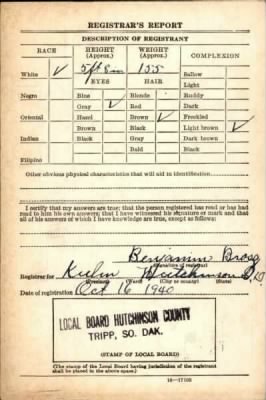 REGISTRAR'S REPORT
DESCRIPTION OF REGISTRANT
RACE HEIGHT (Approx.) WEIGHT (Approx.) COMPLEXION
5 ft 8 in 155
White ✓ EYES HAIR Sallow
Light
Negro Blue Blonde Ruddy
Gray ✓ Red Dark
Oriental Hazel Brown ✓ Freckled
Brown Black Light brown ✓
Indian Black Gray Dark brown
Bald Black
Filipino
Other obvious physical characteristics that will aid in identification
I certify that my answers are true; that the person registered has read or has had read to him his own answers; that I have witnessed his signature or mark and that all of his answers of which I have knowledge are true, except as follows:
Benjamin
(Signature of registrar)
Registrar for Kulm Hutchinson S. D.
(Precinct) (Ward) (City or county) (State)
Date of registration Oct 16 1940
LOCAL BOARD HUTCHINSON COUNTY
TRIPP, SO. DAK.
(STAMP OF LOCAL BOARD)
(The stamp of the Local Board having jurisdiction of the registrant
shall be placed in the above space.)
16-17105